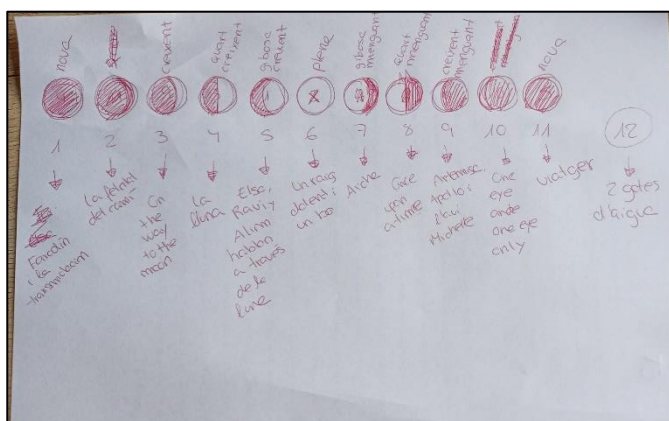 nova
creixent
quart
creixent
gibosa
creixent
plena
gibosa
minguant
quart
minguant
creixent
minguant
nova
1
2
3
4
5
6
7
8
9
10
11
12
i la
transmutación
La
del camí
On
the
way
to the
moon
La
llana
Elsa,
Raui y
Alinn
hablan
a través
de la
luna
Un raig
dolent i
un bo
Aicha
Once
upon
a time
Artemisa,
Apol·lo i
Michelle
One
eye
one eye
only
viatger
2 gotes
d'aigua